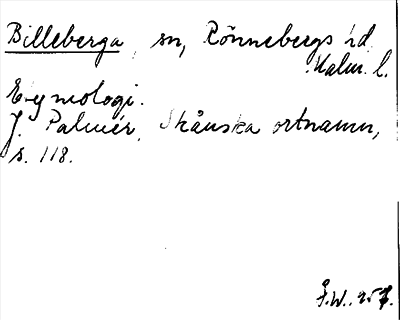 Billeberga, sn, Rönnebergs hd.
Malm. l.
Etymologi.
J. Palmér, Skånska ortnamn,
s. 118.